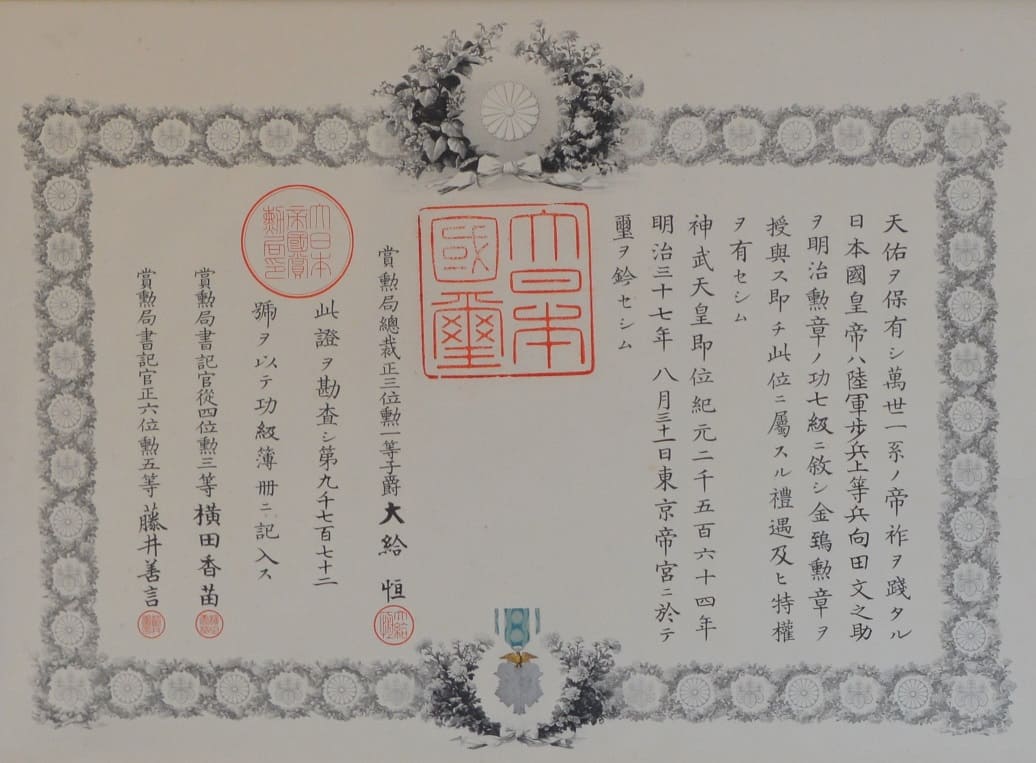 天佑ヲ保有シ萬世一系ノ帝祚ヲ踐タル
日本國皇帝ハ陸軍歩兵上等兵向田文之助
ヲ明治勲章ノ功七級ニ敘シ金鵄勲章ヲ
授與ス即チ此位ニ屬スル禮遇及ヒ特權
ヲ有セシム
神武天皇即位紀元二千五百六十四年
明治三十七年八月三十一日東京帝宮ニ於テ
璽ヲ鈐セシム
大日本國璽
賞勲局總裁正三位勲一等子爵大給恒
大日本帝國賞勲局印
此證ヲ勘査シ第九千七百七十二
號ヲ以テ功級簿冊ニ記入ス
賞勲局書記官從四位勲三等橫田香苗
賞勲局書記官正六位勲五等藤井善言